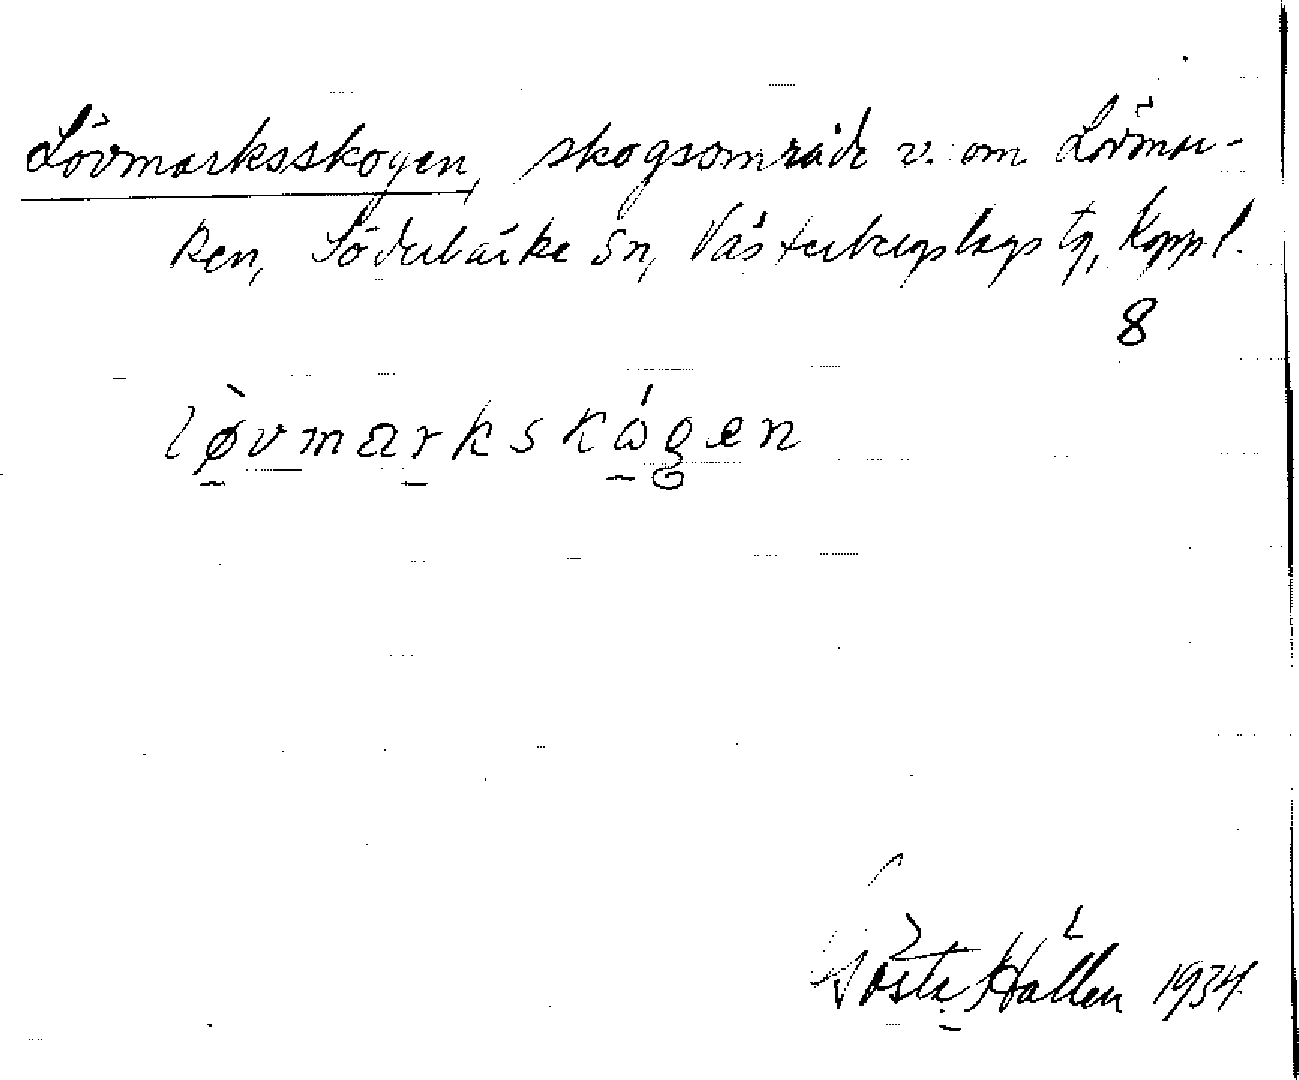 Lövmarksskogen, skogsområde v. om Lövmar-
ken, Söderbärke sn, Västerbergslags tg, Koppl.
8
lø̀vmarkskǻgen
Gösta Hallén 1934